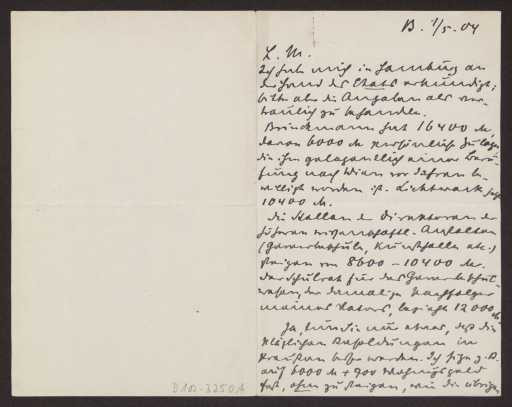 B. 1/5. 04
L. M.
Ich habe mich in Hamburg an
der Hand des Etats erkundigt;
bitte aber die Angaben als ver-
traulich zu behandeln.
Brinckmann hat 16400 M,
davon 6000 M persönliche Zulage
die ihm gelegentlich einer Beru-
fung nach Wien vor Jahren be-
willigt worden ist. Lichtwark hat
10400 M.
Die Stellen der Direktoren der
höheren wissenschaftl. Anstalten
(Gewerbeschule, Kunsthalle etc.)
steigen von 8600 – 10400 M.
Der Schulrat für das Gewerbeschul-
wesen, der damalige Nachfolger
meines Vaters, bezieht 12000 M
Ja, wenn Sie nur etwas, daß die
kläglichen Besoldungen in
Preußen besser werden. Ich sitze z. B.
auf 6000 M + 900 Wohnungsgeld
fest, ohne zu steigen, wie die übrigen
D 102-3250 A